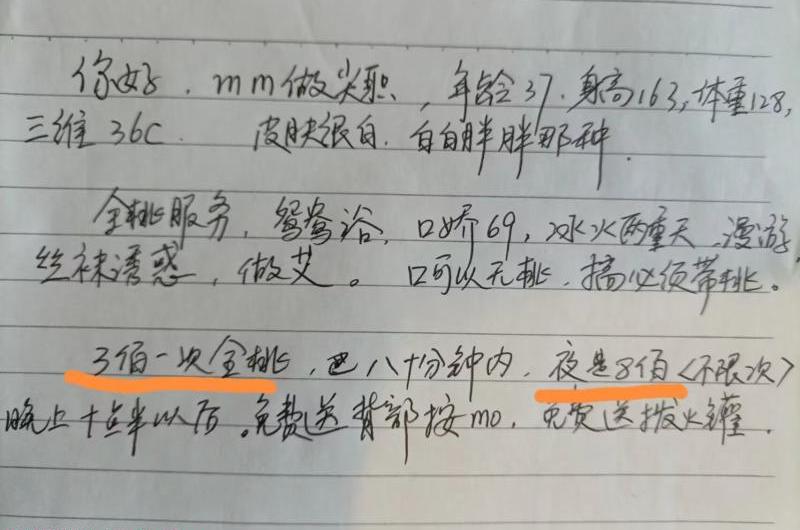 你好．mm做尖职，年龄37．身高163，体重128，
三维36C．皮肤很白．白白胖胖那种．
全桃服务，鸳鸯浴，口娇69，冰火两重天．漫游
丝袜诱惑，做艾。口可以无桃．搞必须带桃。
3佰一次全桃，八十分钟内．夜是8佰<不限次>
晚上十点半以后。免费送背部按mo．免费送拨火罐．